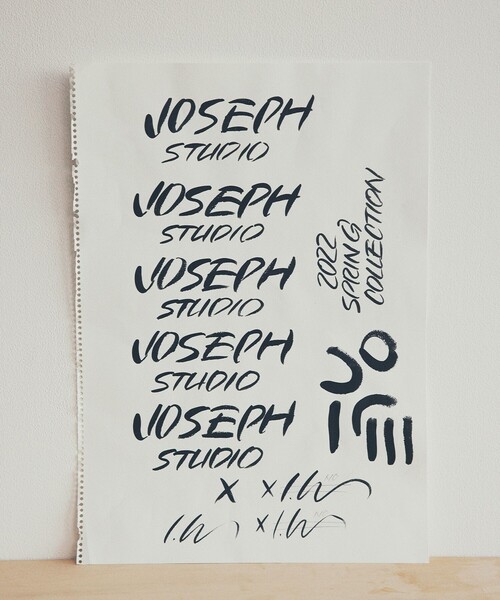 JOSEPH
STUDIO
JOSEPH
STUDIO
JOSEPH
STUDIO
JOSEPH
STUDIO
JOSEPH
STUDIO
2022
SPRING
COLLECTION
X